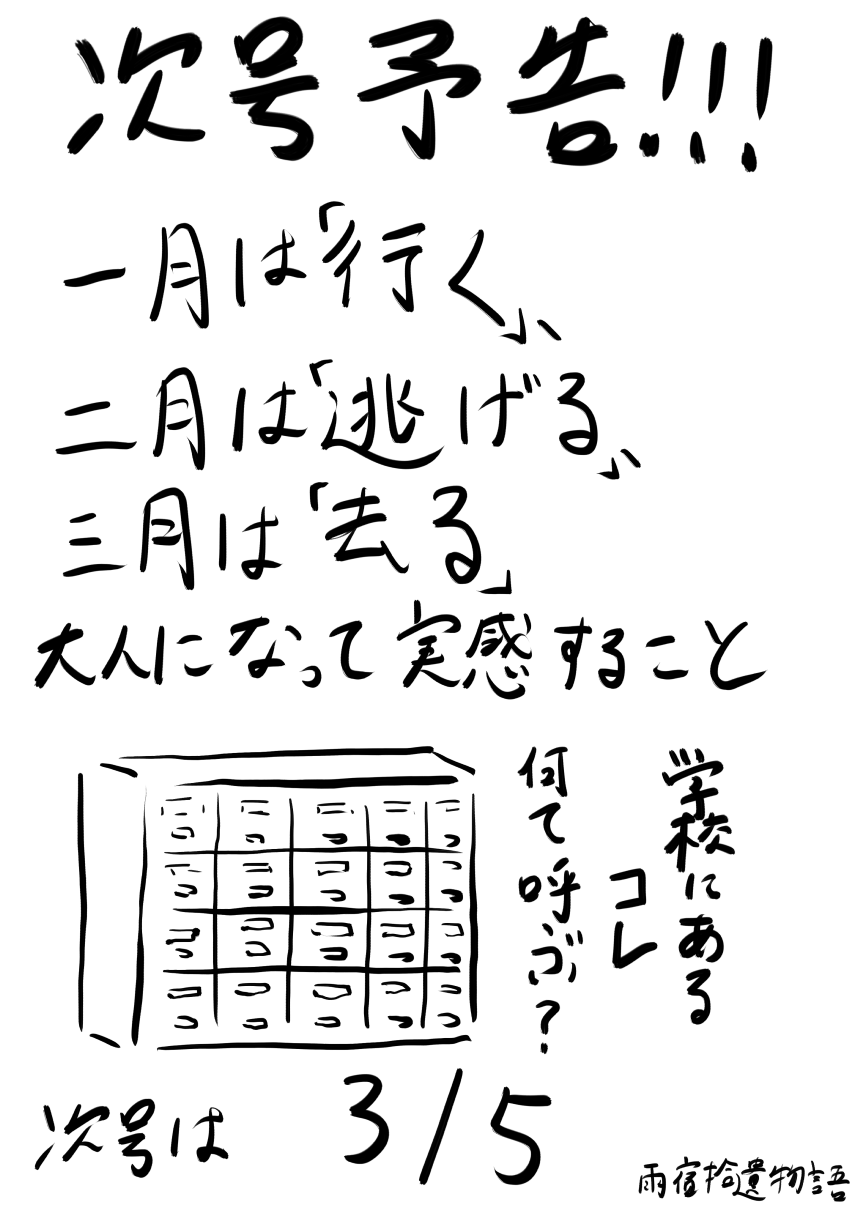 次号予告!!!
一月は「行く」、
二月は「逃げる」、
三月は「去る」
大人になって実感すること
学校にある
コレ
何て呼ぶ?
次号は 3/5
雨宿拾遺物語